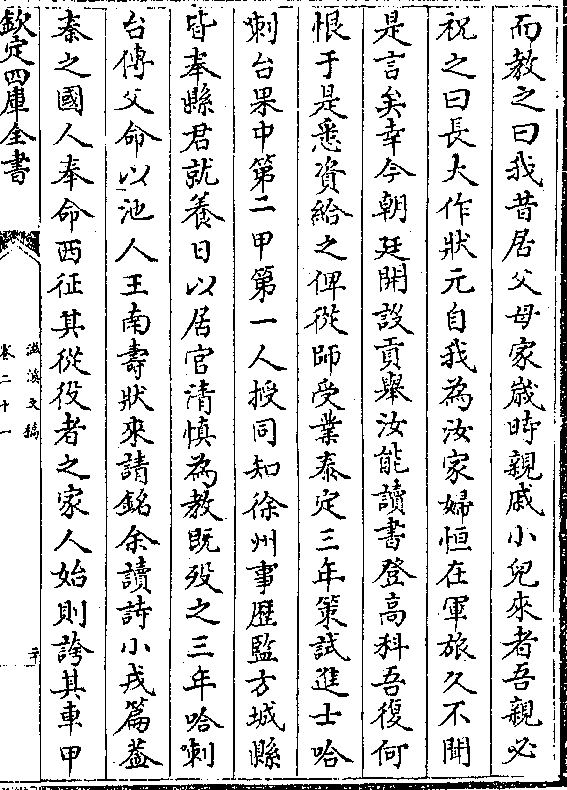 而教之曰我昔居父母家歳時親戚小兒來者吾親必
祝之曰長大作狀元自我為汝家婦恒在軍旅久不聞
是言矣幸今朝廷開設貢舉汝能讀書登高科吾復何
恨于是悉資給之俾從師受業泰定三年策試進士哈
喇台果中第二甲第一人授同知徐州事歴監方城縣
皆奉縣君就養日以居官清慎為教既殁之三年哈喇
台傳父命以池人王南壽狀來請銘余讀詩小戎篇葢
秦之國人奉命西征其從役者之家人始則誇其車甲
欽定四庫全書
滋溪文稿
卷二十一